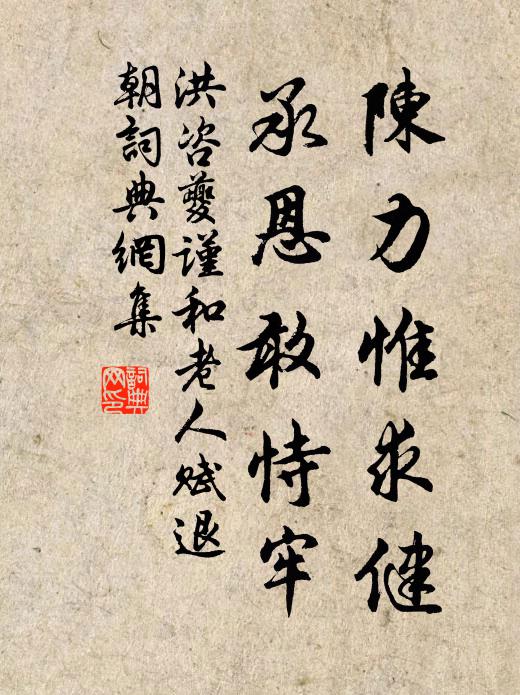 陳力惟求健
承恩敢恃牢
洪咨夔謹和老人賦退
朝詞典網集
詞典
网印